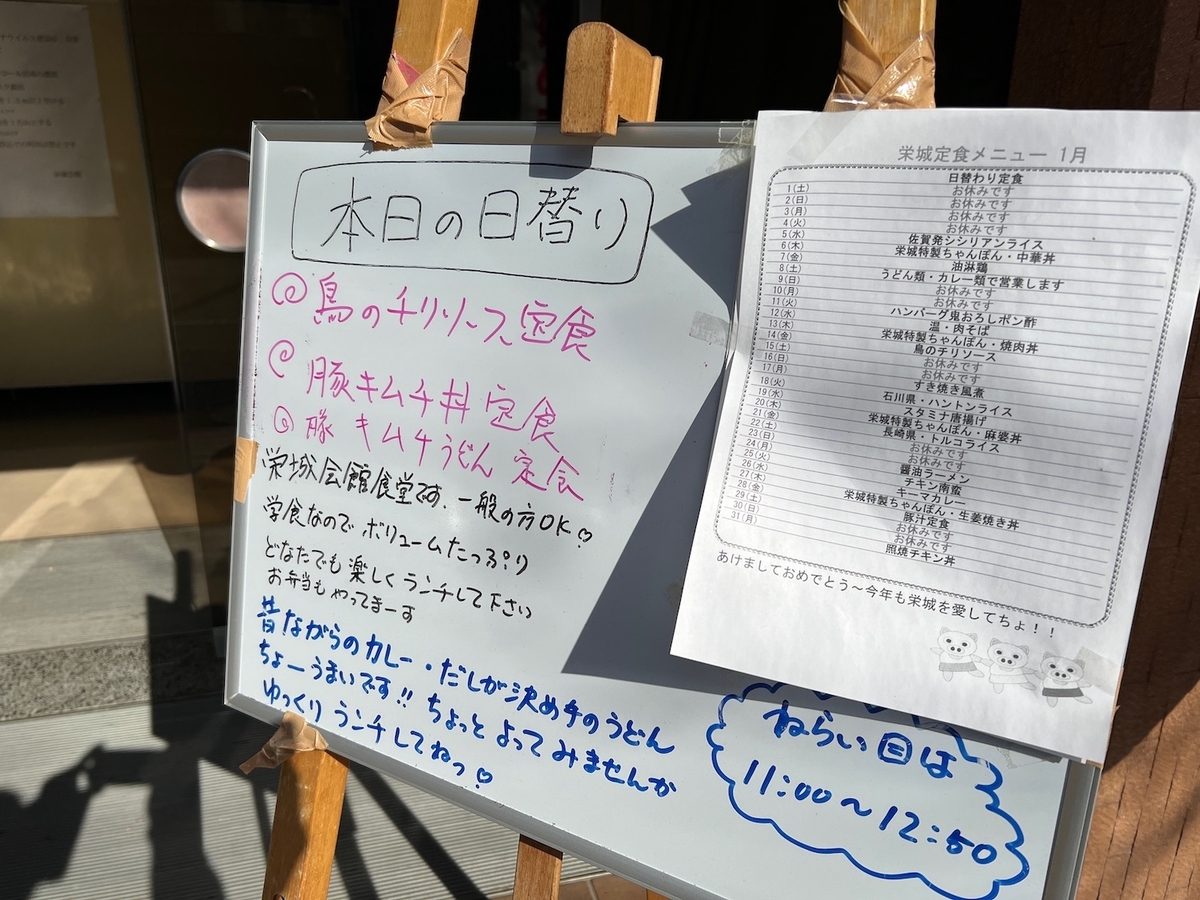 本日の日替り
鳥のチリソース定食
豚キムチ丼定食
豚キムチうどん定食
栄城会館食堂です。一般の方OK♡
学食なのでボリュームたっぷり
どなたでも楽しくランチして下さい
お弁当もやってまーす
昔ながらのカレー・だしが決め手のうどん
ちょーうまいです!! ちょっとよってみませんか
ゆっくりランチしてねっ♡
ねらい目は
11:00〜12:50
栄城定食メニュー 1月
日替わり定食
1(土) お休みです
2(日) お休みです
3(月) お休みです
4(火) お休みです
5(水) 佐賀発シシリアンライス
6(木) 栄城特製ちゃんぽん・中華丼
7(金) 油淋鶏
8(土) うどん類・カレー類で営業します
9(日) お休みです
10(月) お休みです
11(火) ハンバーグ鬼おろしポン酢
12(水) 温・肉そば
13(木) 栄城特製ちゃんぽん・焼肉丼
14(金)鳥のチリソース
15(土) お休みです
16(日) お休みです
17(月) すき焼き風煮
18(火) 石川県・ハントンライス
19(水) スタミナ唐揚げ
20(木) 栄城特製ちゃんぽん・麻婆丼
21(金) 長崎県・トルコライス
22(土) お休みです
23(日) お休みです
24(月) 醤油ラーメン
25(火) チキン南蛮
26(水) キーマカレー
27(木) 栄城特製ちゃんぽん・生姜焼き丼
28(金) 豚汁定食
29(土) お休みです
30(日) お休みです
31(月) 照焼チキン丼
あけましておめでとう〜今年も栄城を愛してちょ!!